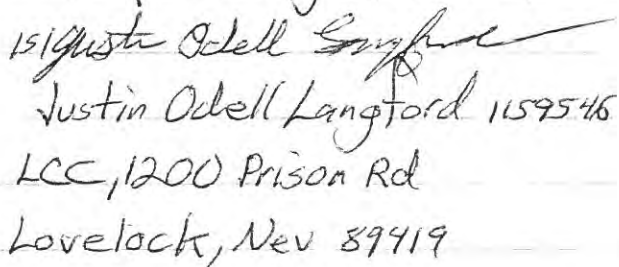 /s/ Justin Odell Langford
Justin Odell Langford 1159546
LCC, 1200 Prison Rd
Lovelock, Nev 89419